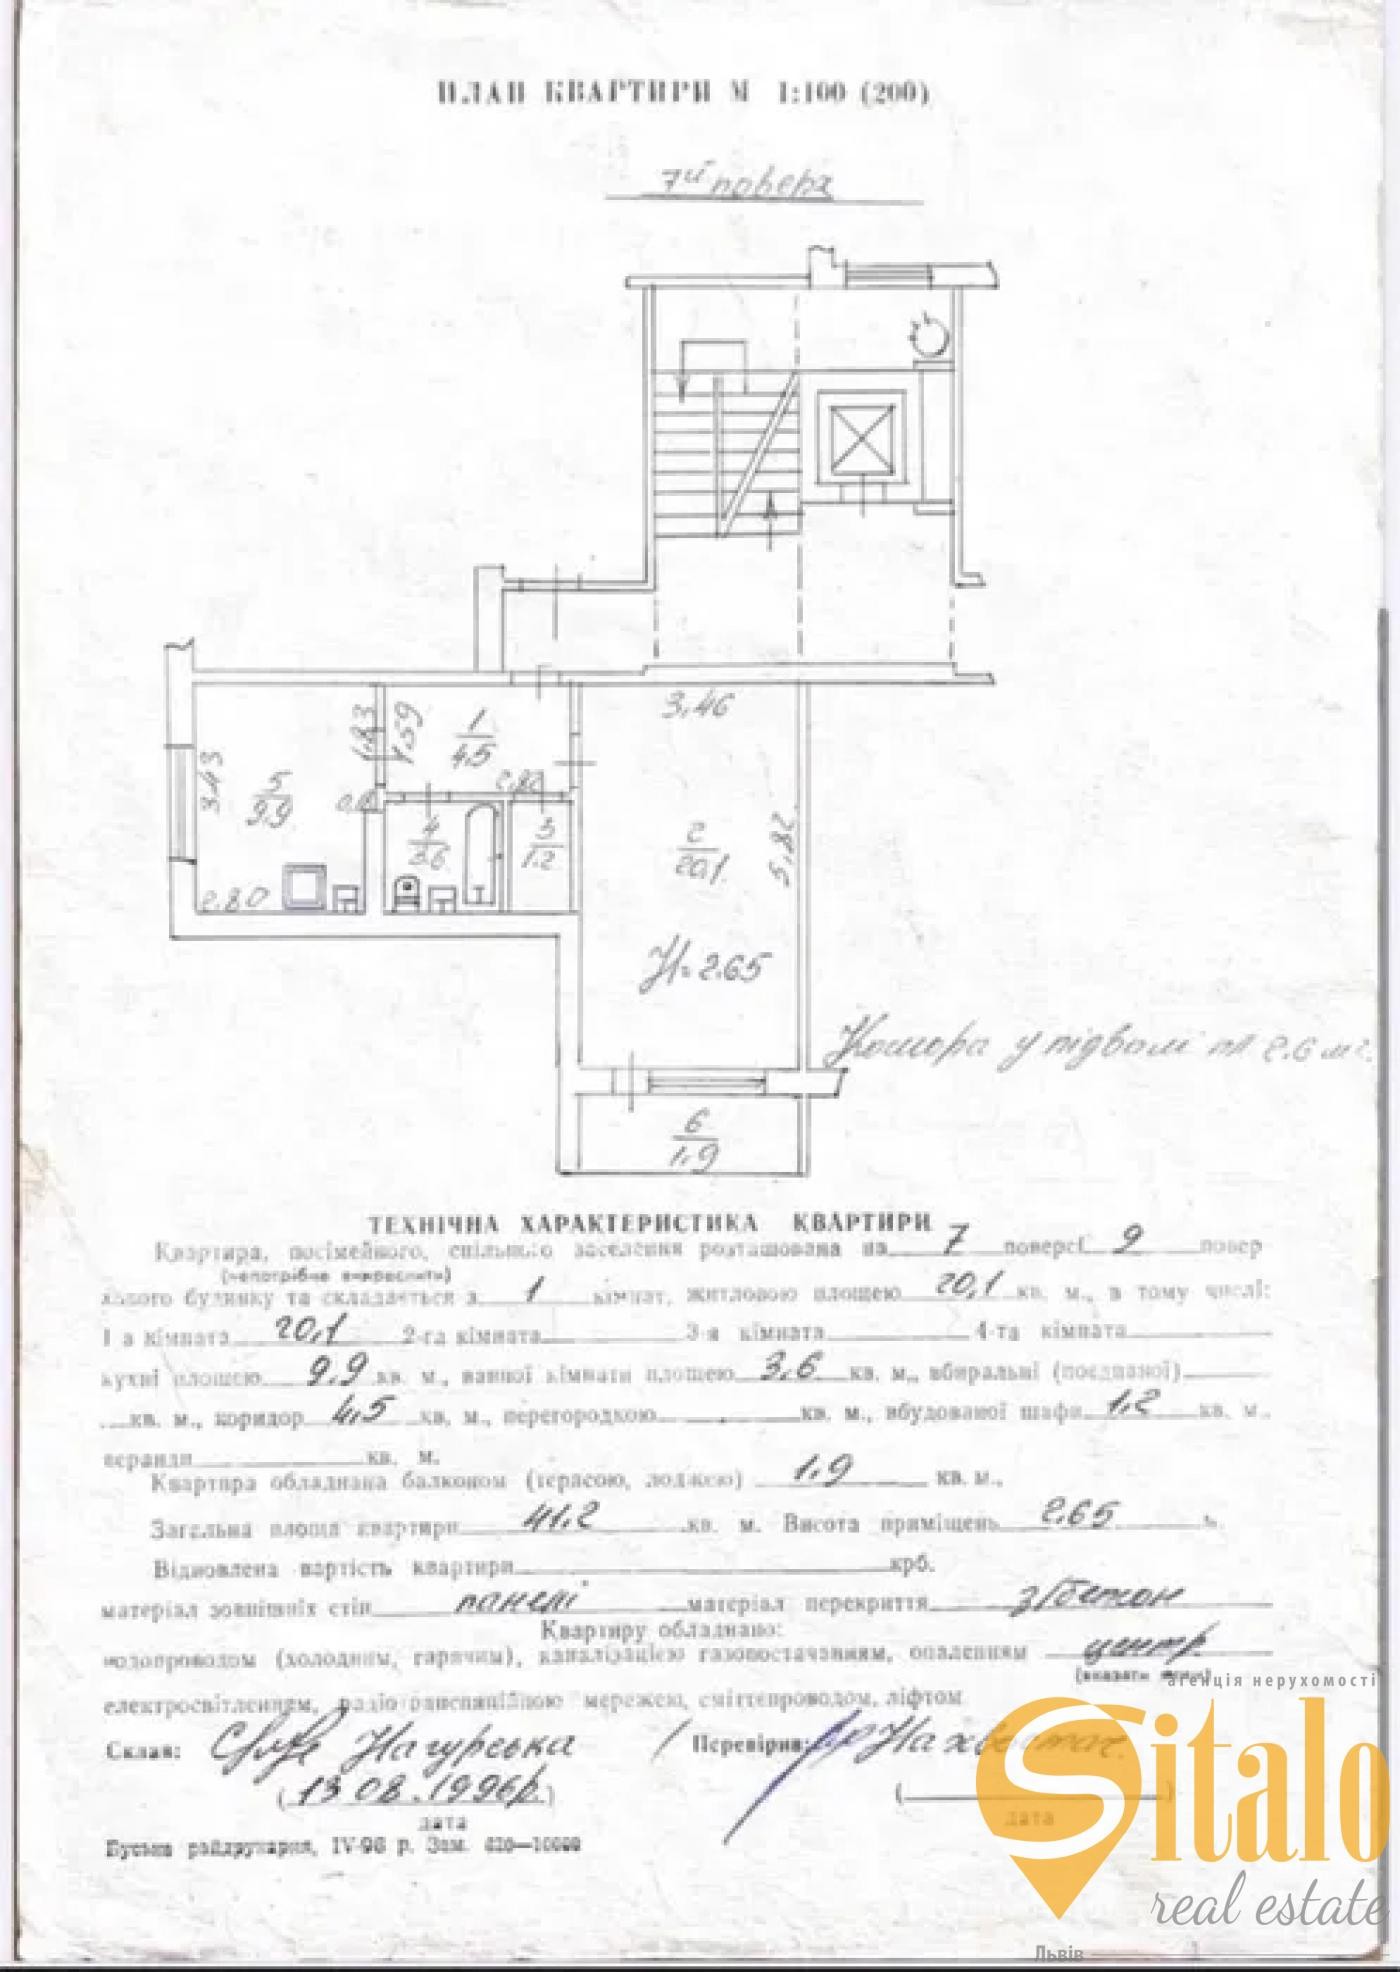 ПЛАН КВАРТИРИ М 1:100 (200)
7й поверх
3,46
1,83
1,59
1
4,5
3,43
5
9,9
2,82
4
3,6
3
1,2
2
20,1
5,82
2,80
Н=2.65
Комора у підвалі пл 2.6 м²
6
1,9
ТЕХНІЧНА ХАРАКТЕРИСТИКА КВАРТИРИ
Квартира, посімейного, спільного заселення розташована на 7 поверсі 9 повер
(непотрібне викреслити)
хового будинку та складається з 1 кімнат, житловою площею 20,1 кв. м., в тому числі:
1 а кімната 20,1 2-га кімната 3-я кімната 4-та кімната
кухні площею 9,9 кв. м., ванної кімнати площею 3,6 кв. м., вбиральні (поєднаної)
кв. м., коридор 4,5 кв. м., перегородкою кв. м., вбудованої шафи 1,2 кв. м.,
веранди кв. м.
Квартира обладнана балконом (терасою, лоджею) 1,9 кв. м.,
Загальна площа квартири 41,2 кв. м. Висота приміщень 2,65 м.
Відновлена вартість квартири крб.
матеріал зовнішніх стін панелі матеріал перекриття з/бетон
Квартиру обладнано:
водопроводом (холодним, гарячим), каналізацією газопостачанням, опаленням центр.
(вказати яким)
агенція нерухомості
електросвітленням, радіотрансляційною мережею, сміттєпроводом, ліфтом
Склав: Нагурська Перевірив:
(13 08. 1996р.)
дата дата
Буська райдрукарня, IV-96 р. Зам. 620—10000
Sitalo
real estate
Львів